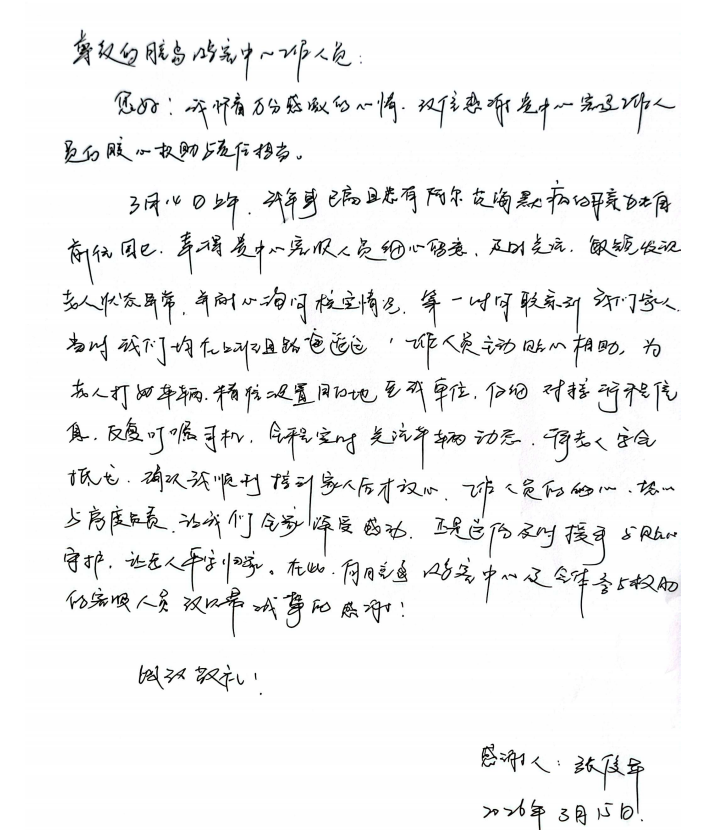 尊敬的胶岛站客中心工作人员：
您好！我怀着万分感激的心情，致信感谢贵中心客运工作人
员的暖心救助与责任担当。
3月14日上午，我年事已高且患有阿尔茨海默病的母亲独自
前往，幸得贵中心客服人员细心留意、及时关注，敏锐发现
老人状态异常，并耐心询问核实情况，第一时间联系到我们家人。
当时我们均在上班且路途遥远，工作人员主动贴心相助，为
老人打的车辆，精准设置目的地至我单位，仔细对接行程信
息，反复叮嘱司机，全程实时关注车辆动态，待老人安全
抵达，确认我顺利接到家人后才放心。工作人员的细心、耐心
与高度负责，让我们全家深受感动。正是这份及时援手与贴心
守护，让老人平安归家。在此，向胶岛站客中心及全体参与救助
的客服人员致以最诚挚的感谢！
此致敬礼！
感谢人：张俊华
2026年3月15日.